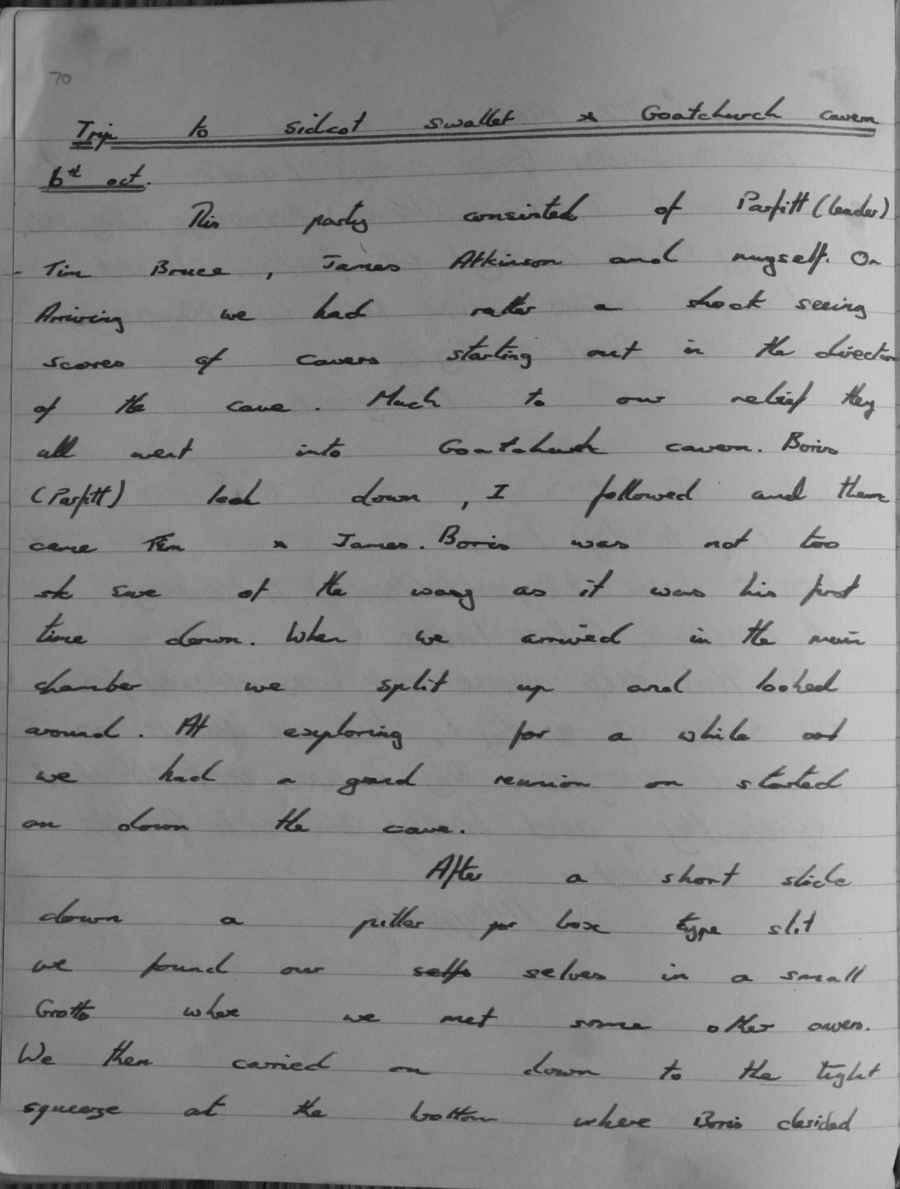 70
Trip to sidcot swallet & Goatchurch cavern
6th oct.
This party consisted of Parfitt (leader)
Tim Bruce, James Atkinson and mugself. On
Arriving we had rather a shock seeing
scores of cavers starting out in the direction
of the cave. Much to our relief they
all went into Goatchurch cavern. Boris
(Parfitt) lead down, I followed and then
came Tim & James. Boris was not too
sure of the way as it was his first
time down. When we arrived in the main
chamber we split up and looked
around. At exploring for a while
we had a grand reunion on started
on down the cave.
After a short slide
down a piller box type slit
we found our selfs selves in a small
Grotto where we met some other
We then carried on down to the tight
squeeze at the bottom where Boris desided